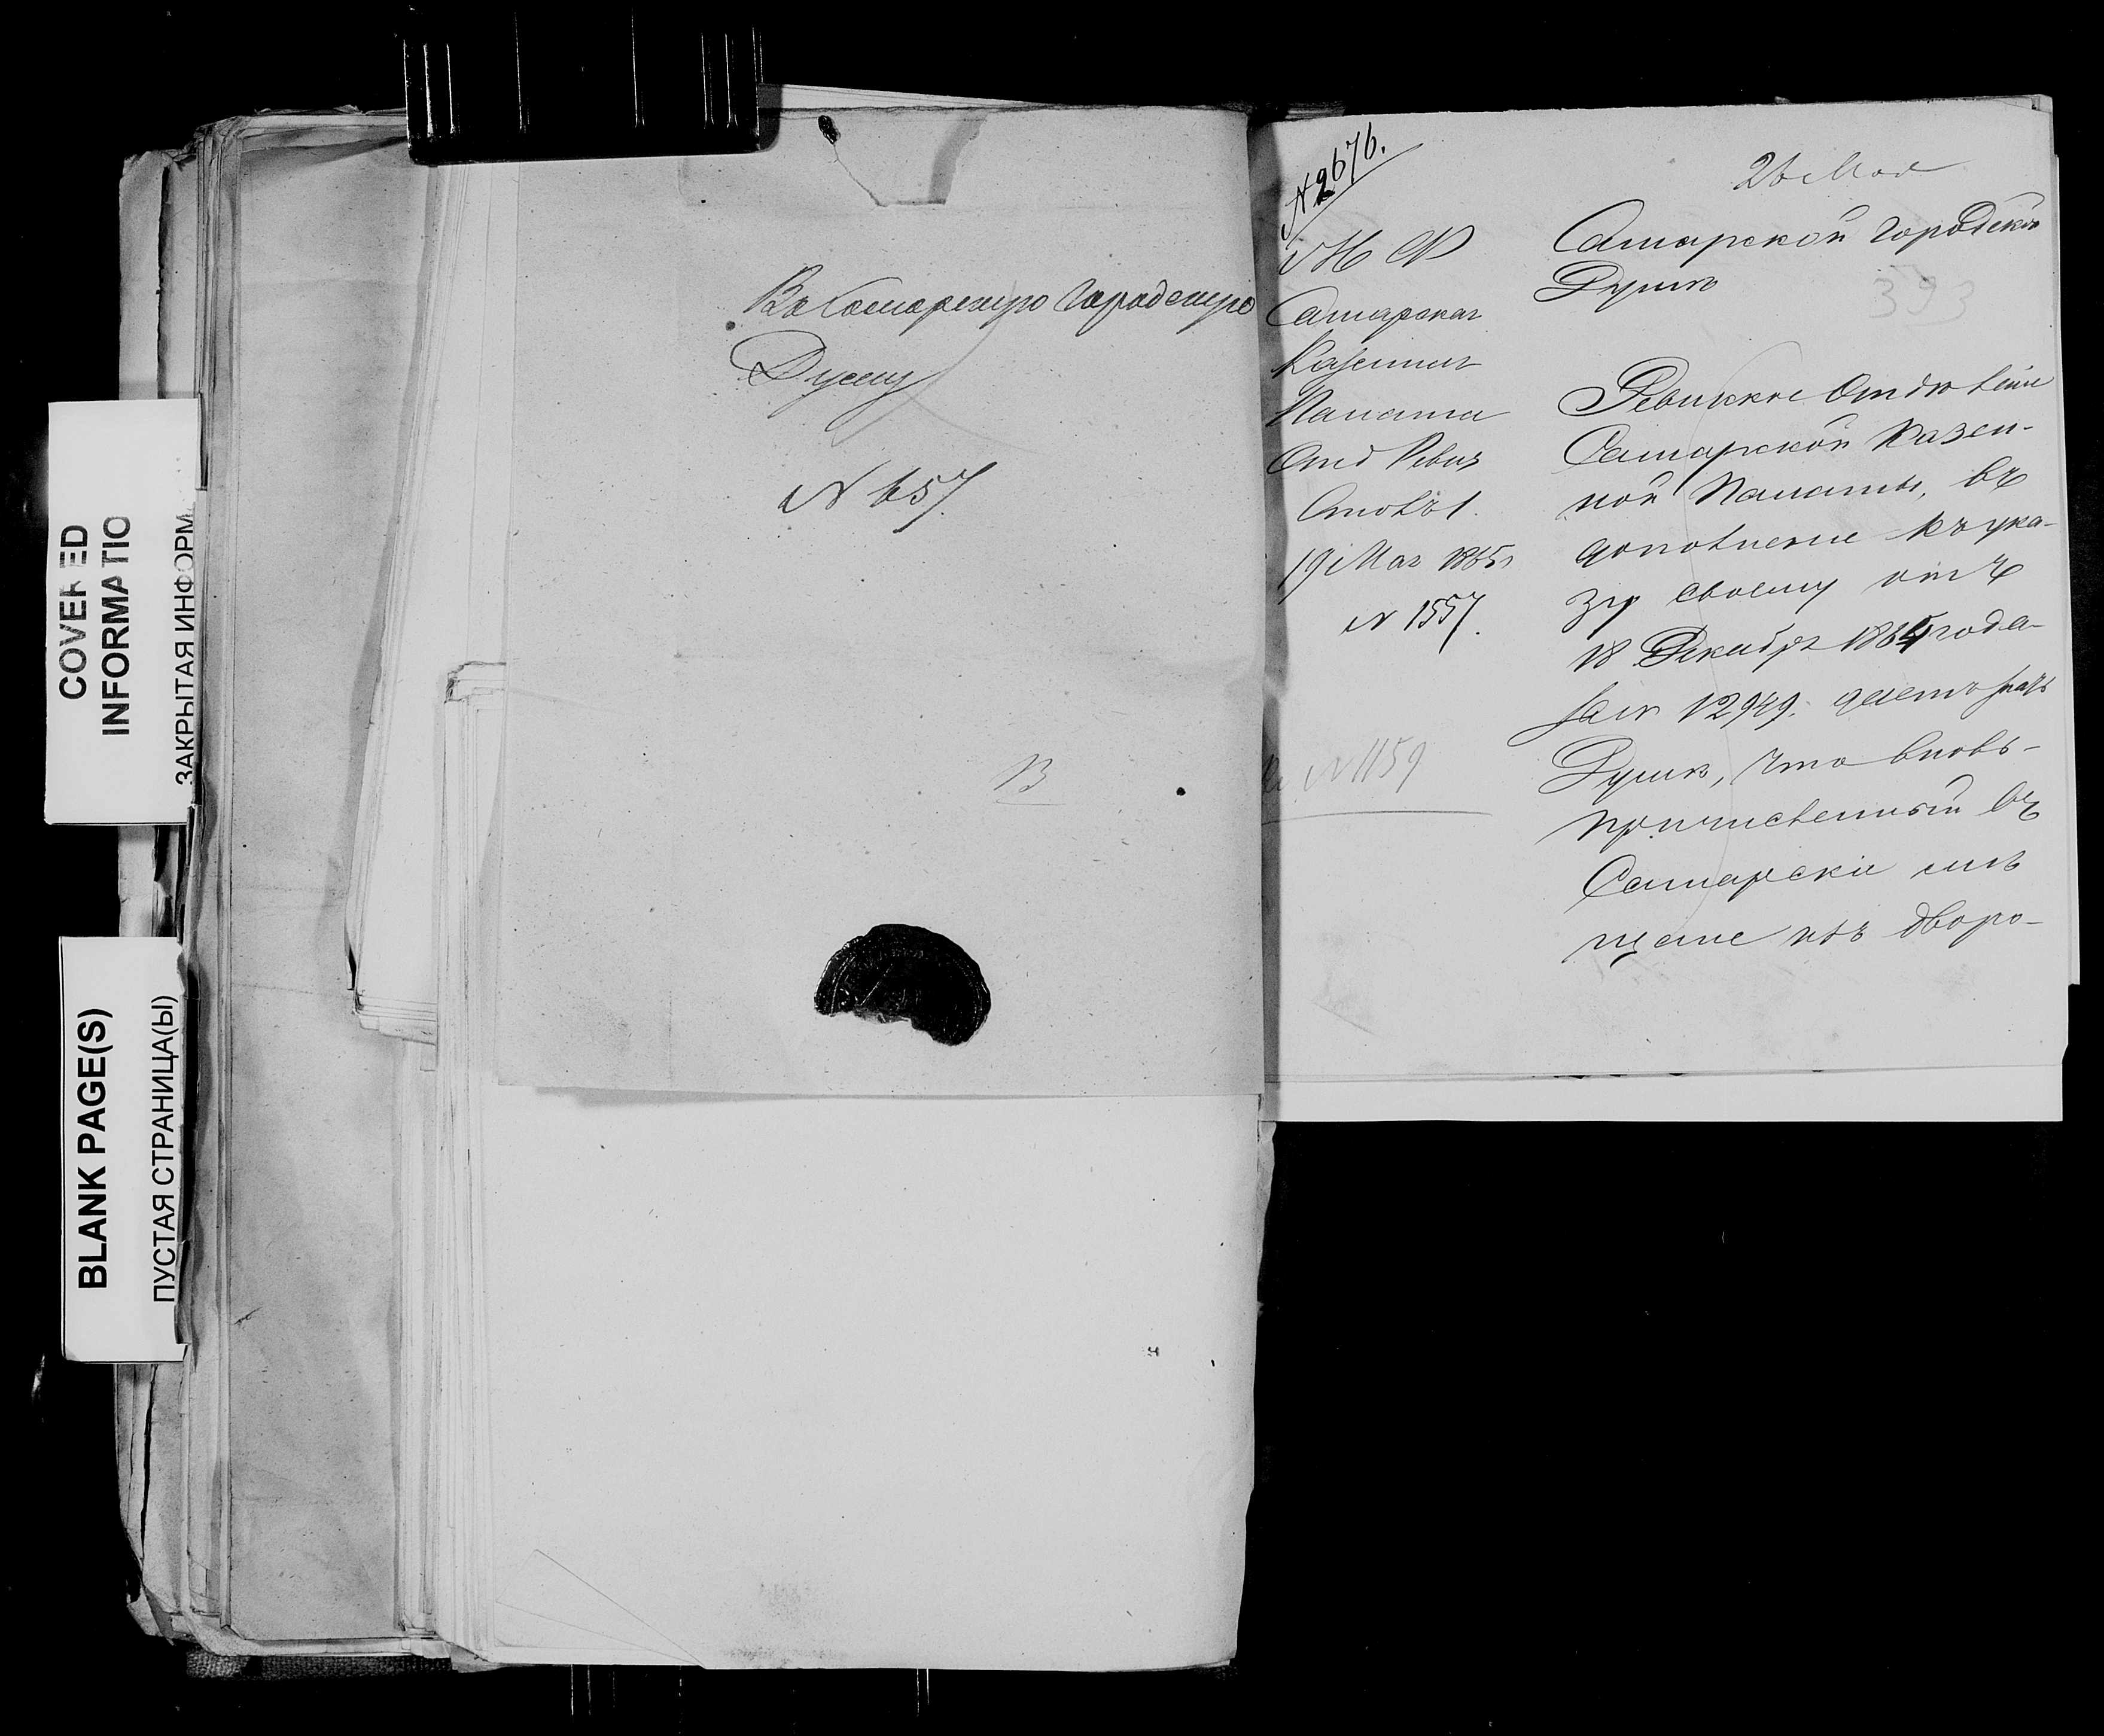 COVERED
INFORMATIO
ЗАКРЫТАЯ ИНФОРМ
BLANK PAGE(S)
ПУСТАЯ СТРАНИЦА(Ы)
Въ Самарскую Городскую
Думу
N 657.
В
N 2676.
М Ф
Самарская
Казенная
Палата
Отд Ревиз
Столъ 1.
19 Мая 1865 г
N 1557.
N 1159
26 Мая
Самарской Городской
Думѣ
393
Ревизское Отдѣленіе
Самарской Казен-
ной Палаты, въ
дополненіе къ ука-
зу своему отъ
18 Декабря 1864 года
за № 12949. даетъ знать
Думѣ, что вновь-
причисленный въ
Самарскіе мѣ
щане изъ дворо-